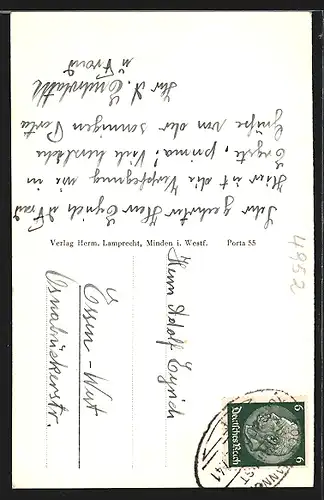 Sehr geehrter Herr Eyrich u Frau
Hier ist die Verpflegung wie in
prima! Viele herzliche
Grüße von der sonnigen Porta
Ihr A.
u Frau
Verlag Herm. Lamprecht, Minden i. Westf. Porta 55
4952
Herrn Adolf Eyrich
Essen - West
Osnabrückerstr.
Deutsches Reich
6
6
41